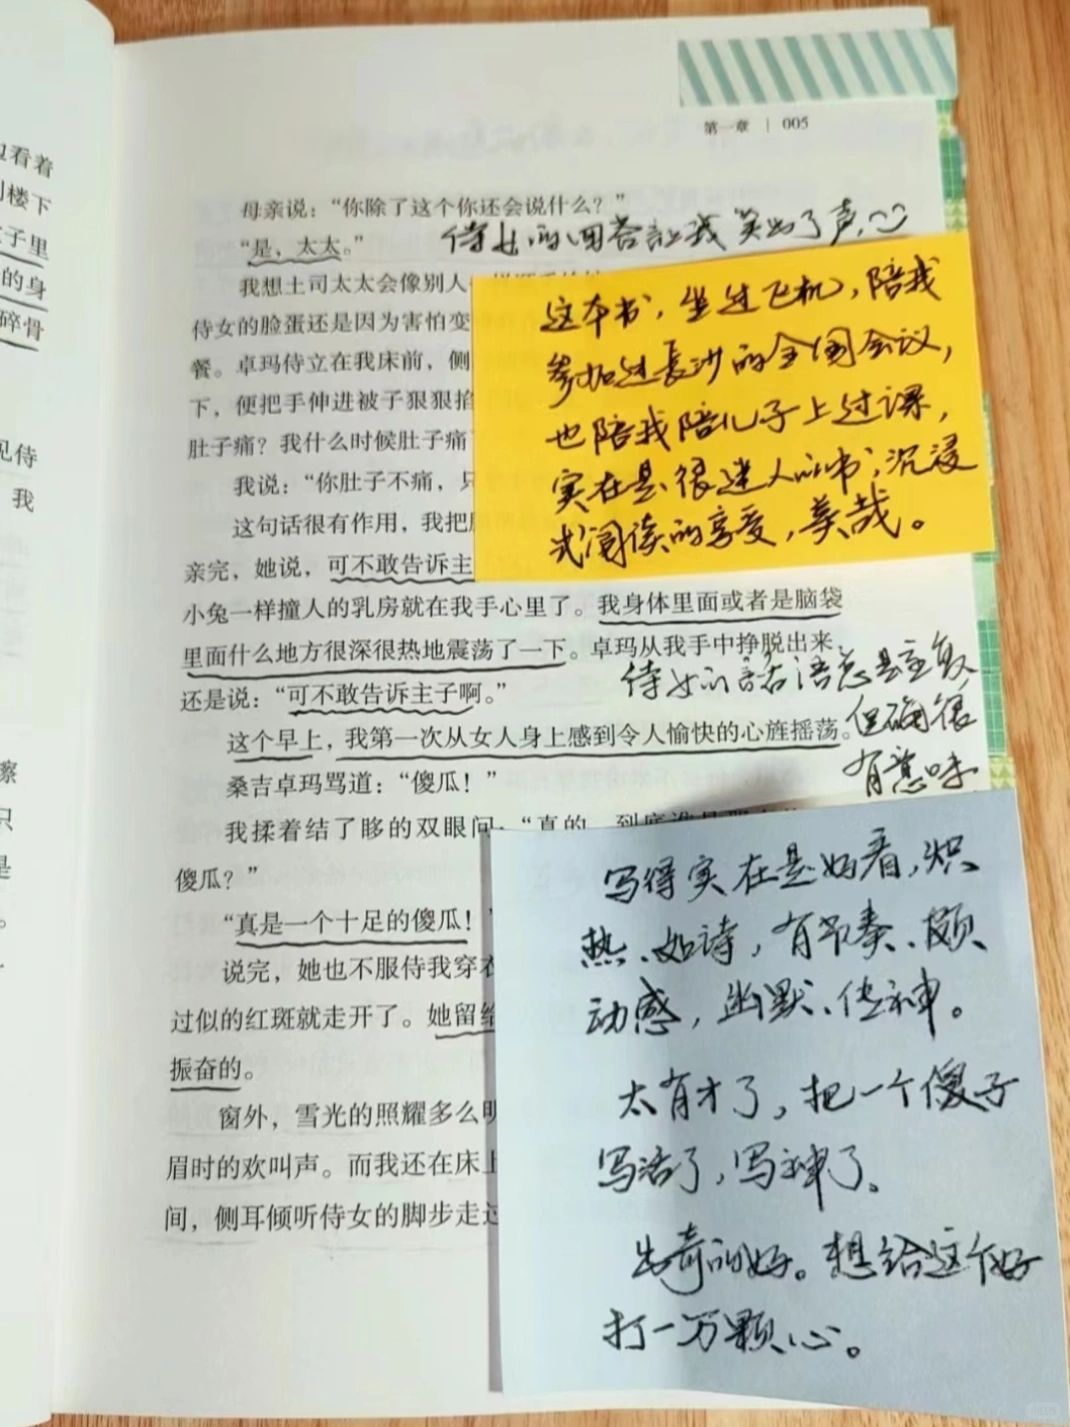 第一章 | 005
母亲说：“你除了这个你还会说什么？”
“是，太太。”
侍女的回答让我笑出了声
我想土司太太会像别人
侍女的脸蛋还是因为害怕变
餐。卓玛侍立在我床前，侧
下，便把手伸进被子狠狠掐
肚子痛？我什么时候肚子痛
我说：“你肚子不痛，只
这句话很有作用，我把
亲完，她说，可不敢告诉主
小兔一样撞人的乳房就在我手心里了。我身体里面或者是脑袋
里面什么地方很深很热地震荡了一下。卓玛从我手中挣脱出来，
还是说：“可不敢告诉主子啊。”
这个早上，我第一次从女人身上感到令人愉快的心旌摇荡。
桑吉卓玛骂道：“傻瓜！”
我揉着结了眵的双眼问：“真的，到底谁是那个
傻瓜？”
“真是一个十足的傻瓜！
说完，她也不服侍我穿衣
过似的红斑就走开了。她留给
振奋的。
窗外，雪光的照耀多么明
眉时的欢叫声。而我还在床上
间，侧耳倾听侍女的脚步走过
这本书，坐过飞机，陪我
参加过长沙的全国会议，
也陪我陪儿子上过课，
实在是很迷人的书；沉浸
式阅读的享受，美哉。
侍女的话语总是重复，
但确很
有意味
写得实在是好看，炽
热、如诗，有节奏、颇
动感，幽默、传神。
太有才了，把一个傻子
写活了，写神了。
出奇的好。想给这个好
打一万颗心。
边看着
到楼下
子里
的身
碎骨
见侍
我
擦
只
是